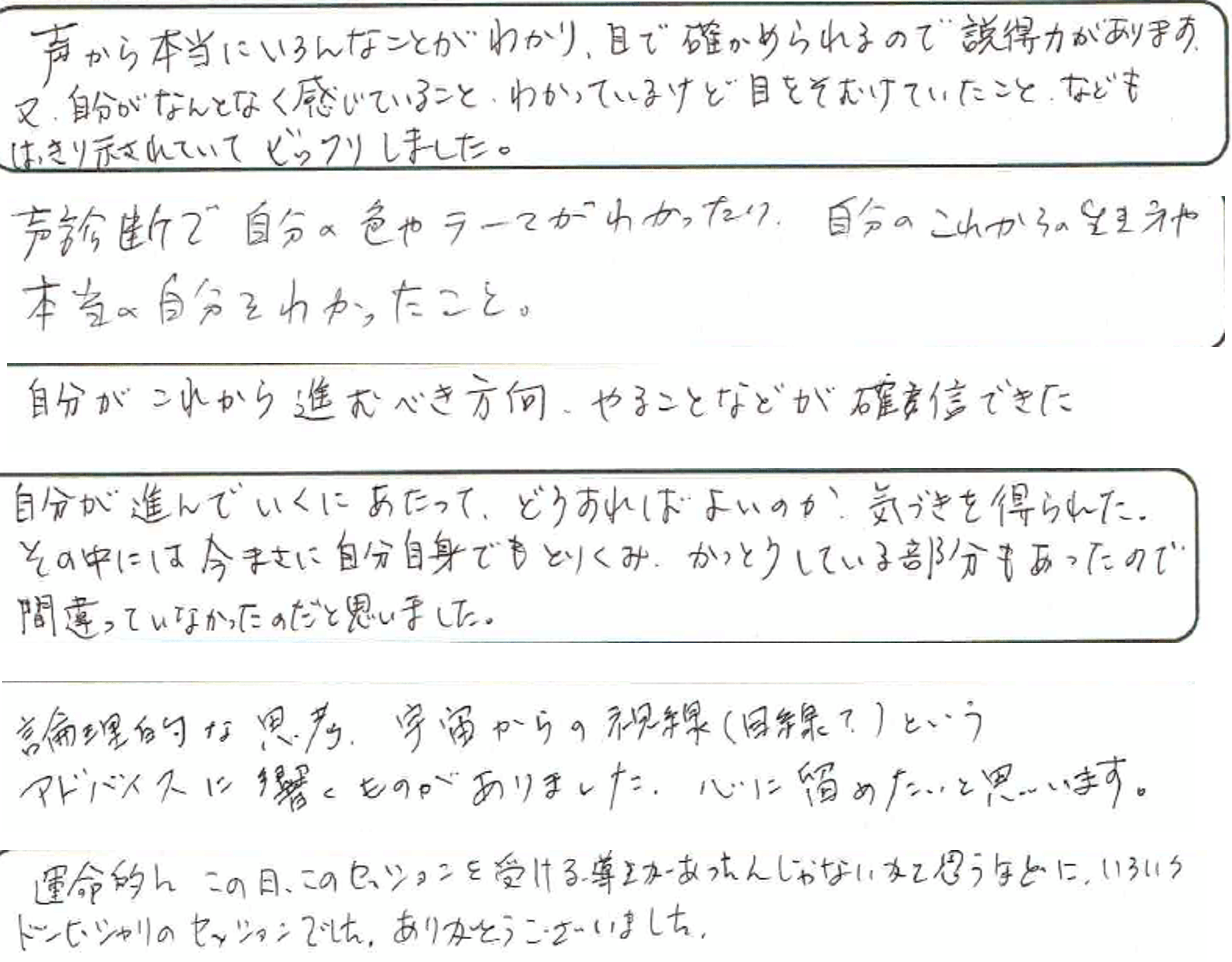 声から本当にいろんなことがわかり、目で確かめられるので説得力があります、
又、自分がなんとなく感じていること、わかっているけど目をそむけていたこと、なども
はっきり示されていてビックリしました。
声診断で自分の色やテーマがわかったり、自分のこれからの生き方や
本当の自分をわかったこと。
自分がこれから進むべき方向、やることなどが確信できた
自分が進んでいくにあたって、どうあればよいのか、気づきを得られた。
その中には今まさに自分自身でもとりくみ、かっとうしている部分もあったので
間違っていなかったのだと思いました。
論理的な思考、宇宙からの視線(目線?)という
アドバイスに響くものがありました。心に留めたいと思います。
運命的にこの日、このセッションを受ける導きがあったんじゃないかと思うほどに、いろいろ
ドンピシャリのセッションでした。ありがとうございました。